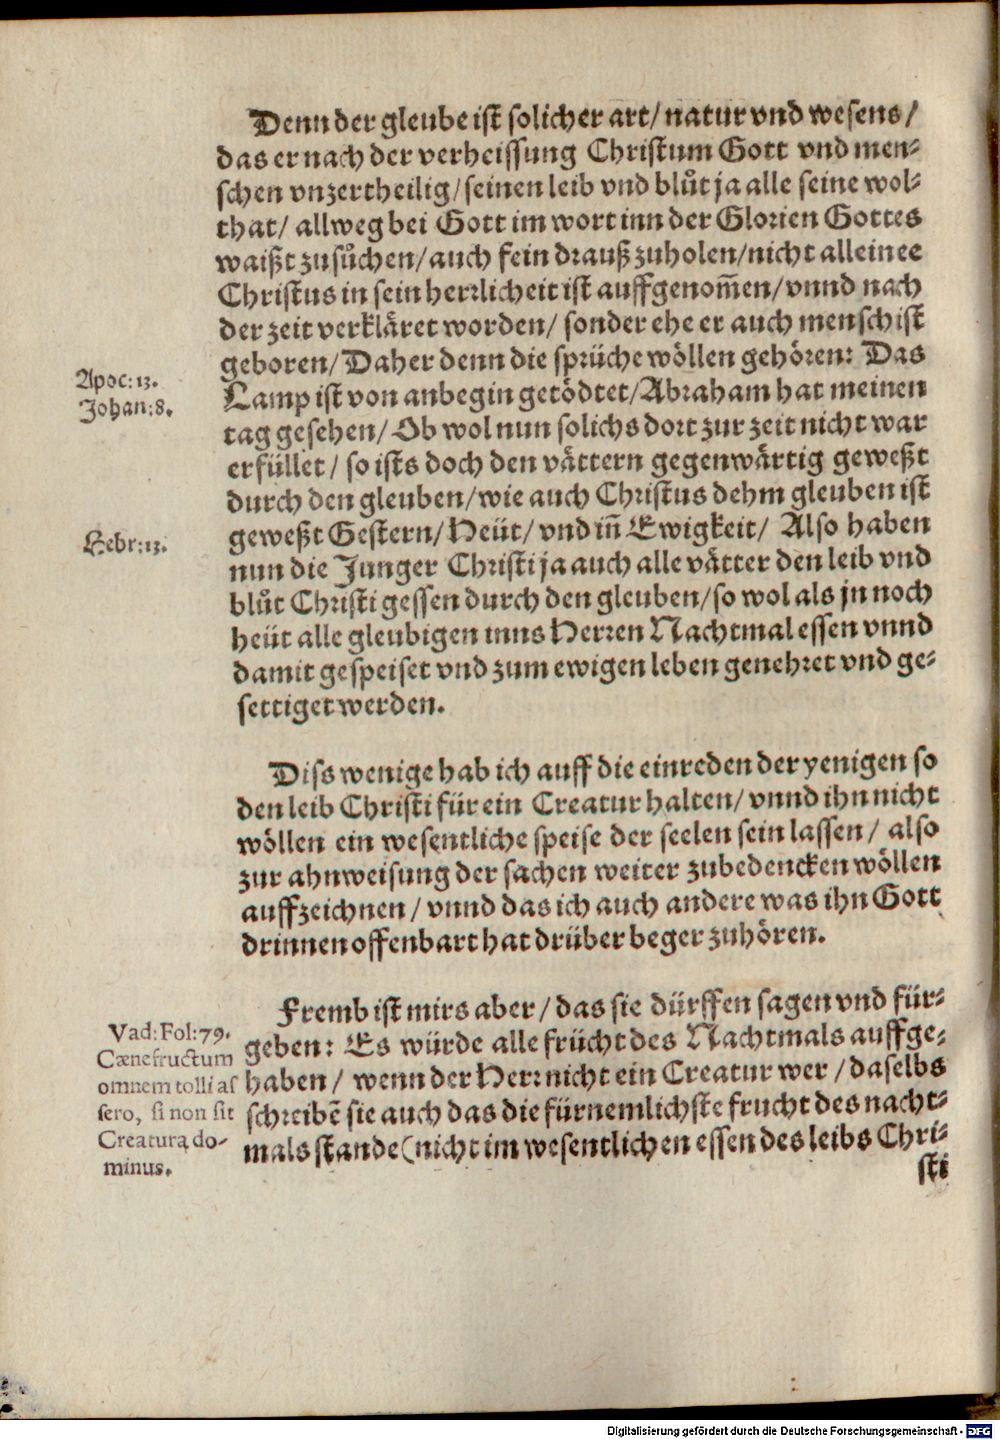 Denn der gleube ist solicher art/ natur vnd wesens/
das er nach der verheissung Christum Gott vnd men-
schen vnzertheilig/ seinen leib vnd blůt ja alle seine wol-
that/ allweg bei Gott im wort inn der Glorien Gottes
waißt zusůchen/ auch fein drauß zuholen/ nicht alleine e
Christus in sein herrlicheit ist auffgenom̃en/ vnnd nach
der zeit verkläret worden/ sonder ehe er auch mensch ist
geboren/ Daher denn die sprüche wöllen gehören: Das
Apoc: 13.
Lamp ist von anbegin getödtet/ Abraham hat meinen
Johan: 8.
tag gesehen/ Ob wol nun solichs dort zur zeit nicht war
erfüllet/ so ists doch den vättern gegenwärtig geweßt
durch den gleuben/ wie auch Christus dehm gleuben ist
geweßt Gestern/ Heüt/ vnd iñ Ewigkeit/ Also haben
Hebr: 13.
nun die Junger Christi ja auch alle vätter den leib vnd
blůt Christi gessen durch den gleuben/ so wol als jn noch
heüt alle gleubigen inns Herren Nachtmal essen vnnd
damit gespeiset vnd zum ewigen leben genehret vnd ge-
settiget werden.
Diss wenige hab ich auff die einreden der yenigen so
den leib Christi für ein Creatur halten/ vnnd ihn nicht
wöllen ein wesentliche speise der seelen sein lassen/ also
zur ahnweisung der sachen weiter zubedencken wöllen
auffzeichnen/ vnnd das ich auch andere was ihn Gott
drinnen offenbart hat drüber beger zuhören.
Fremb ist mirs aber/ das sie dürffen sagen vnd für-
geben: Es würde alle frücht des Nachtmals auffge-
haben/ wenn der Herr nicht ein Creatur wer/ daselbs
schreibẽ sie auch das die fürnemlichste frucht des nacht-
mals stande (nicht im wesentlichen essen des leibs Chri-
sti
Vad: Fol: 79.
Cænefructum
omnem tolli as
sero, si non sit
Creatura do-
minus.
Digitalisierung gefördert durch die Deutsche Forschungsgemeinschaft - DFG